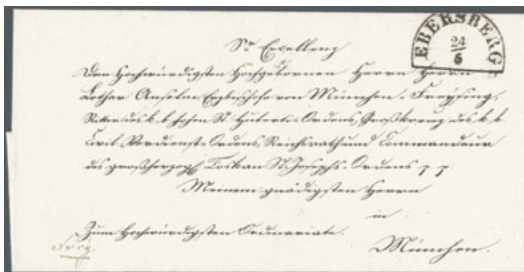 EBERSBERG
24
5
Sr Excellenz
Dem Hochwürdigsten Hochgebornen Herrn Herrn
Lothar Anselm, Erzbischofe von München-Freysing,
Ritter des k. b. hohen St. Huberti-Ordens, Großkreuz des k. b.
Civil-Verdienst-Ordens, Reichsrath und Commandeur
des großherzogl. Toskan. St. Josephs-Ordens p. p.
Meinem gnädigsten Herrn
in
Zum Hochwürdigsten Ordinariate.
München.